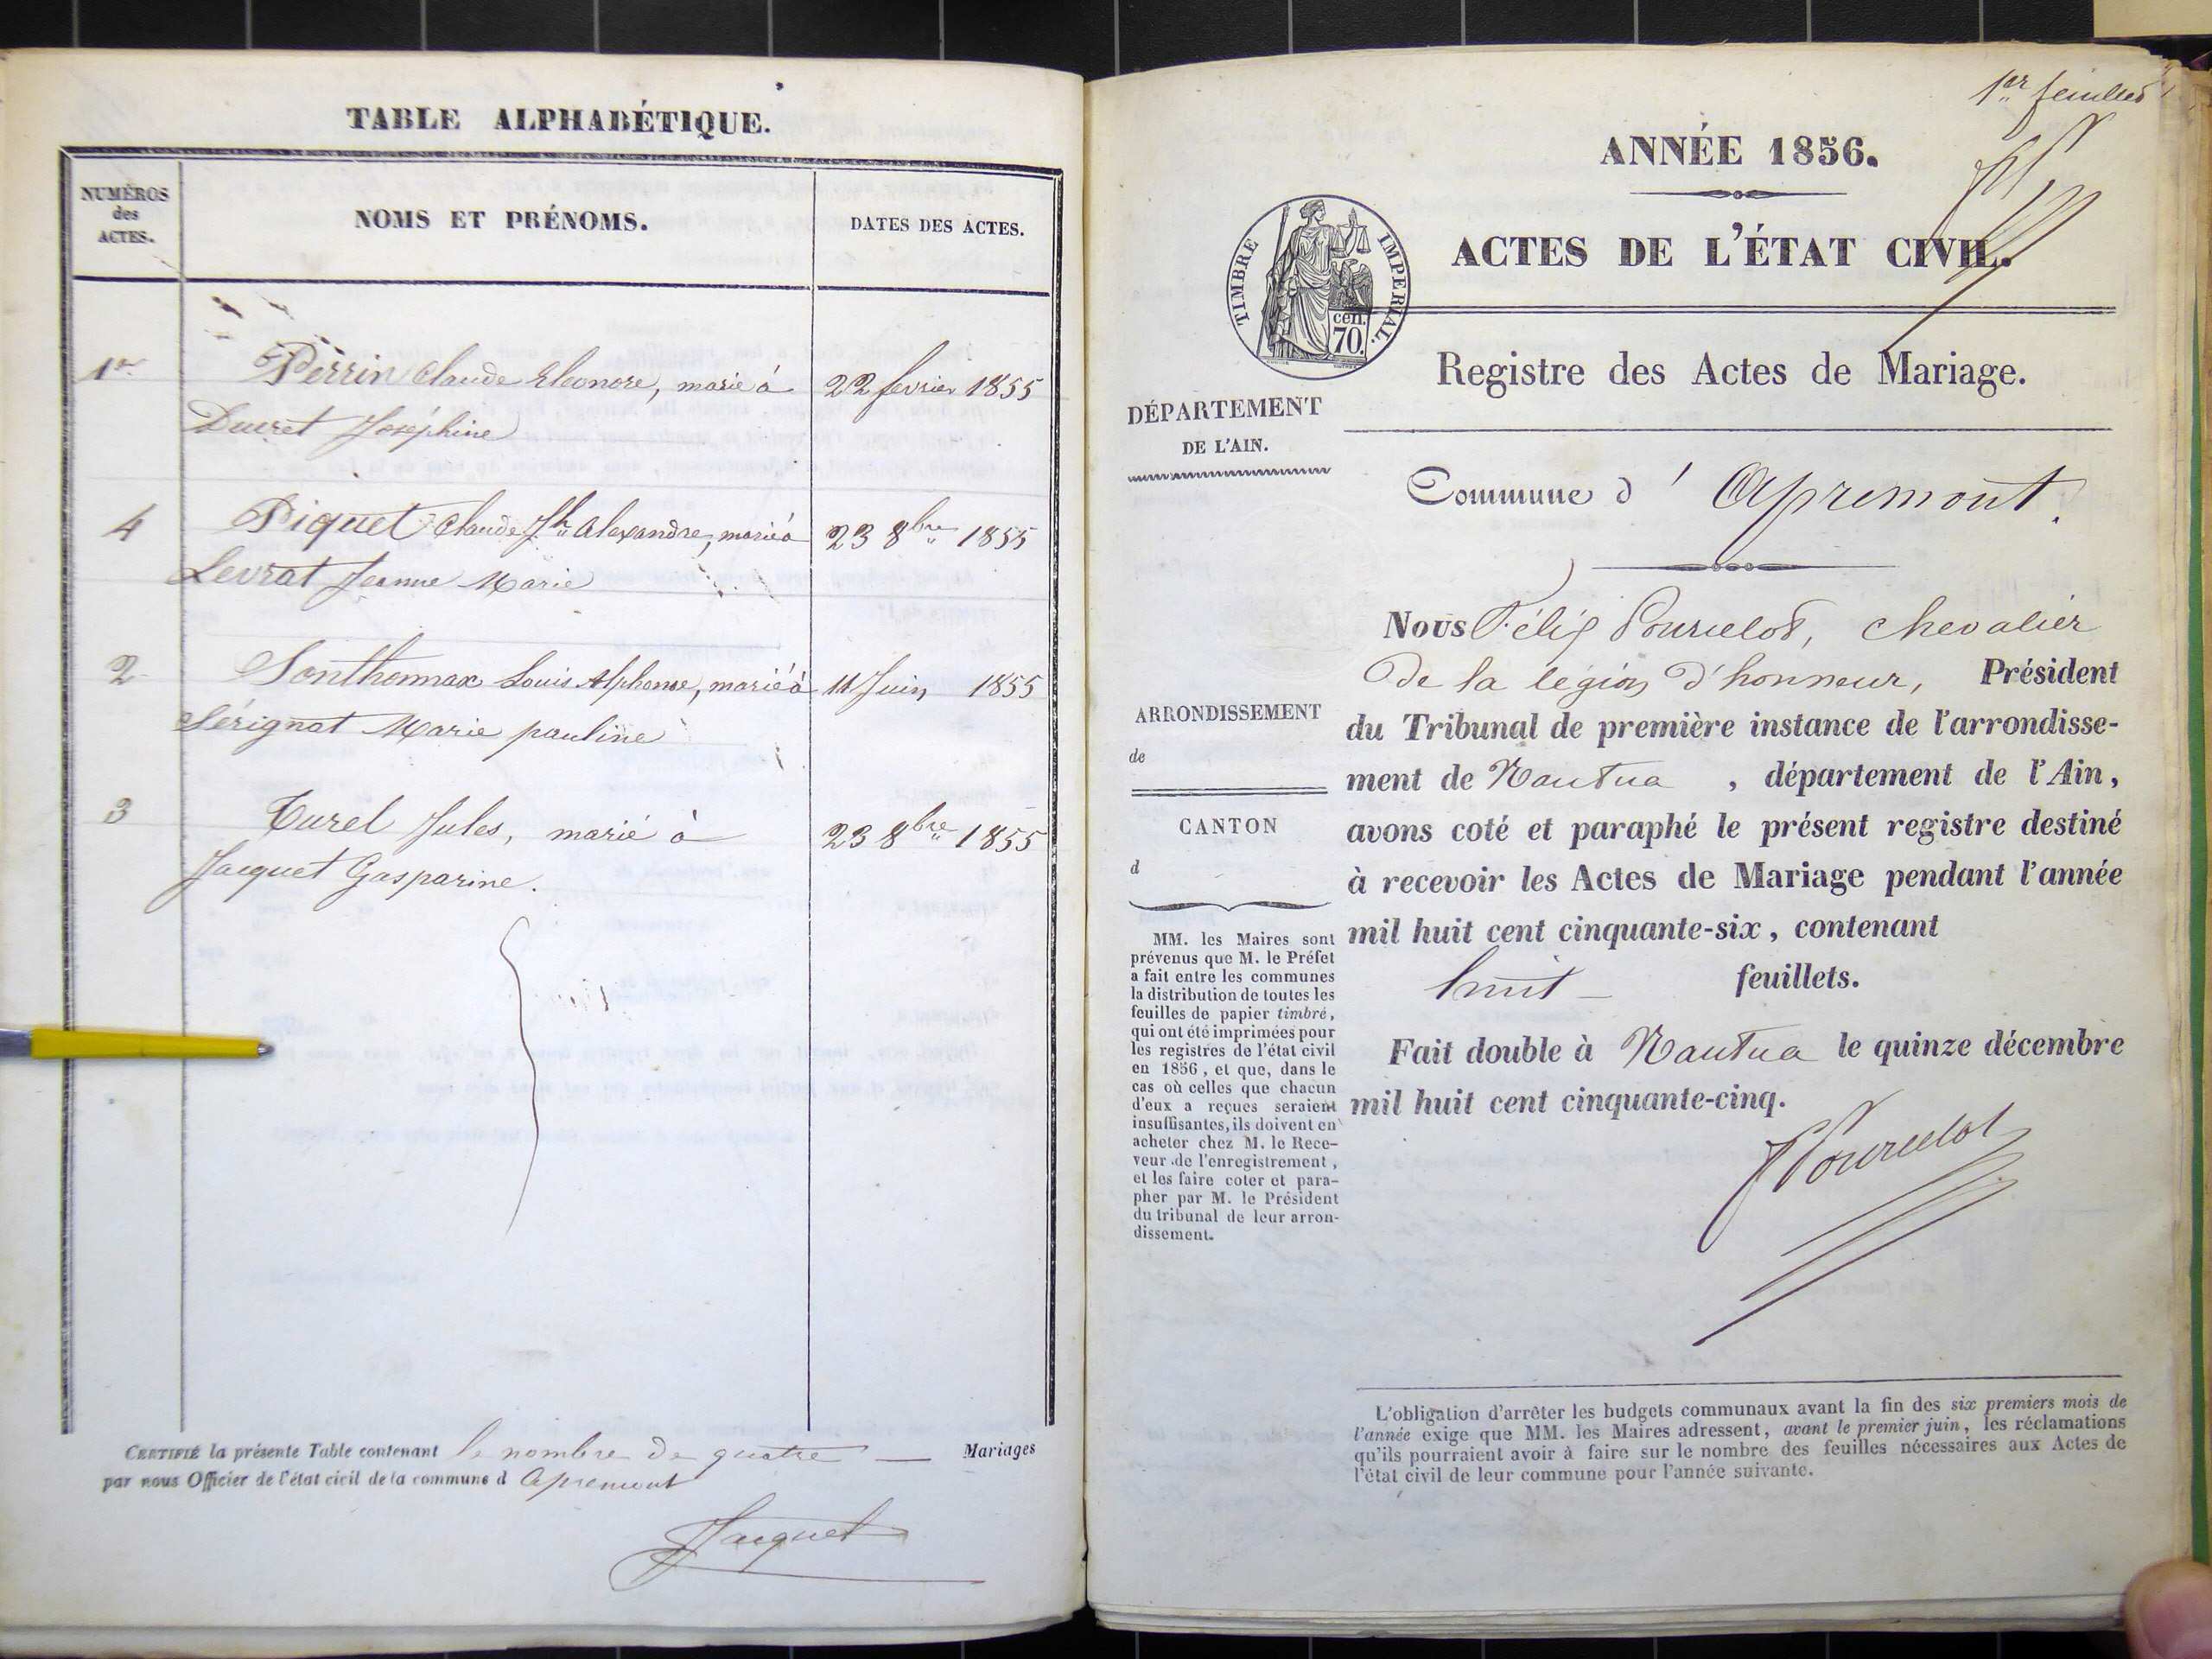 TABLE ALPHABÉTIQUE.
NUMÉROS
des
ACTES.
NOMS ET PRÉNOMS.
DATES DES ACTES.
1er Perrin Claude Eleonore, marié à 22 fevrier 1855
Ducret Joséphine
4 Piquet Claude Jh Alexandre, marié à 23 8bre 1855
Levrat Jeanne Marie
2 Sonthonnax Louis Alphonse, marié à 11 Juin 1855
Sérignat Marie pauline
3 Turel Jules, marié à 23 8bre 1855
Jacquet Gasparine.
CERTIFIÉ la présente Table contenant le nombre de quatre — Mariages
par nous Officier de l'état civil de la commune d Apremont
Jacquet
1er feuillet
ANNÉE 1856.
ACTES DE L'ÉTAT CIVIL.
TIMBRE IMPERIAL.
cen.
70.
Registre des Actes de Mariage.
DÉPARTEMENT
DE L'AIN.
Commune d' Apremont.
ARRONDISSEMENT
de
CANTON
d
MM. les Maires sont
prévenus que M. le Préfet
a fait entre les communes
la distribution de toutes les
feuilles de papier timbré,
qui ont été imprimées pour
les registres de l'état civil
en 1856, et que, dans le
cas où celles que chacun
d'eux a reçues seraient
insuffisantes, ils doivent en
acheter chez M. le Rece-
veur de l'enregistrement,
et les faire coter et para-
pher par M. le Président
du tribunal de leur arron-
dissement.
Nous Félix Pourcelot, chevalier
de la légion d'honneur, Président
du Tribunal de première instance de l'arrondisse-
ment de Nantua , département de l'Ain,
avons coté et paraphé le présent registre destiné
à recevoir les Actes de Mariage pendant l'année
mil huit cent cinquante-six, contenant
huit — feuillets.
Fait double à Nantua le quinze décembre
mil huit cent cinquante-cinq.
F Pourcelot
L'obligation d'arrêter les budgets communaux avant la fin des six premiers mois de
l'année exige que MM. les Maires adressent, avant le premier juin, les réclamations
qu'ils pourraient avoir à faire sur le nombre des feuilles nécessaires aux Actes de
l'état civil de leur commune pour l'année suivante.